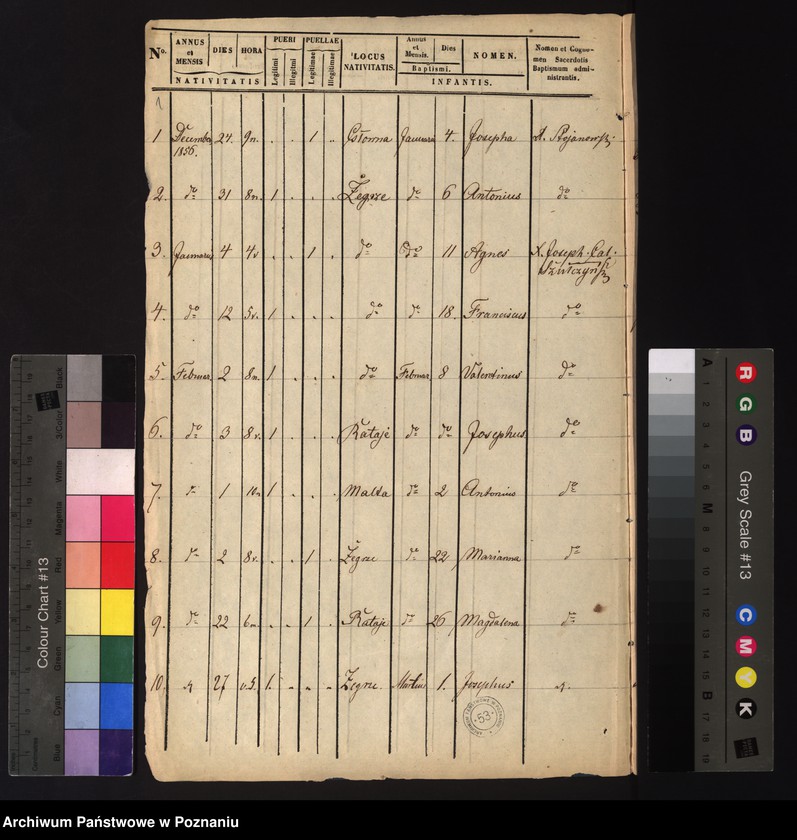 No. ANNUS et MENSIS DIES HORA PUERI PUELLAE LOCUS NATIVITATIS. Annus et Mensis. Dies NOMEN. Nomen et Cognomen Sacerdotis Baptismum administrantis.
NATIVITATIS Legitimi Illegitmi Legitimae Illegitimae Baptismi. INFANTIS.
1 December 1856. 24. 9n. . . 1 . Januarii 4. Josepha
2. do 31 8n. 1 . . . Żegrze do 6 Antonius do
3. Januarii 4 4v. . . 1 . do do 11 Agnes X. Joseph. Cal.
4. do 12 5v. 1 . . . do do 18. Franciscus do
5. Februar. 2 8n. 1 . . . do Februar. 8 Valentinus do
6. do 3 8v. 1 . . . Rataje do do Josephus do
7. do 1 10n. 1 . . . Malta do 2 Antonius do
8. do 2 8v. . . 1 . Żegrze do 22 Marianna do
9. do 22 6n. . . 1 . Rataje do 26 Magdalena do
10. 27 v.5. 1. . . . Żegrze Martius 1. Josephus
53
Colour Chart #13
Blue Cyan Green Yellow Red Magenta White 3/Color Black
Grey Scale #13
R G B C M Y K
A 1 2 3 4 5 6 M 8 9 10 11 12 13 14 15 B 17 18 19
Archiwum Państwowe w Poznaniu